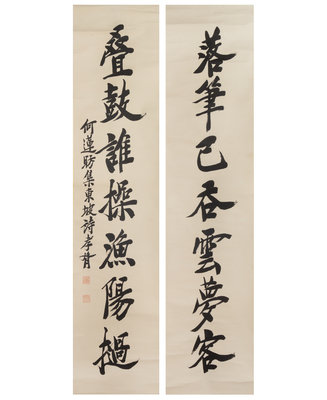 落筆已吞雲夢客
叠鼓誰操漁陽撾
何蓮舫集東坡詩孝胥